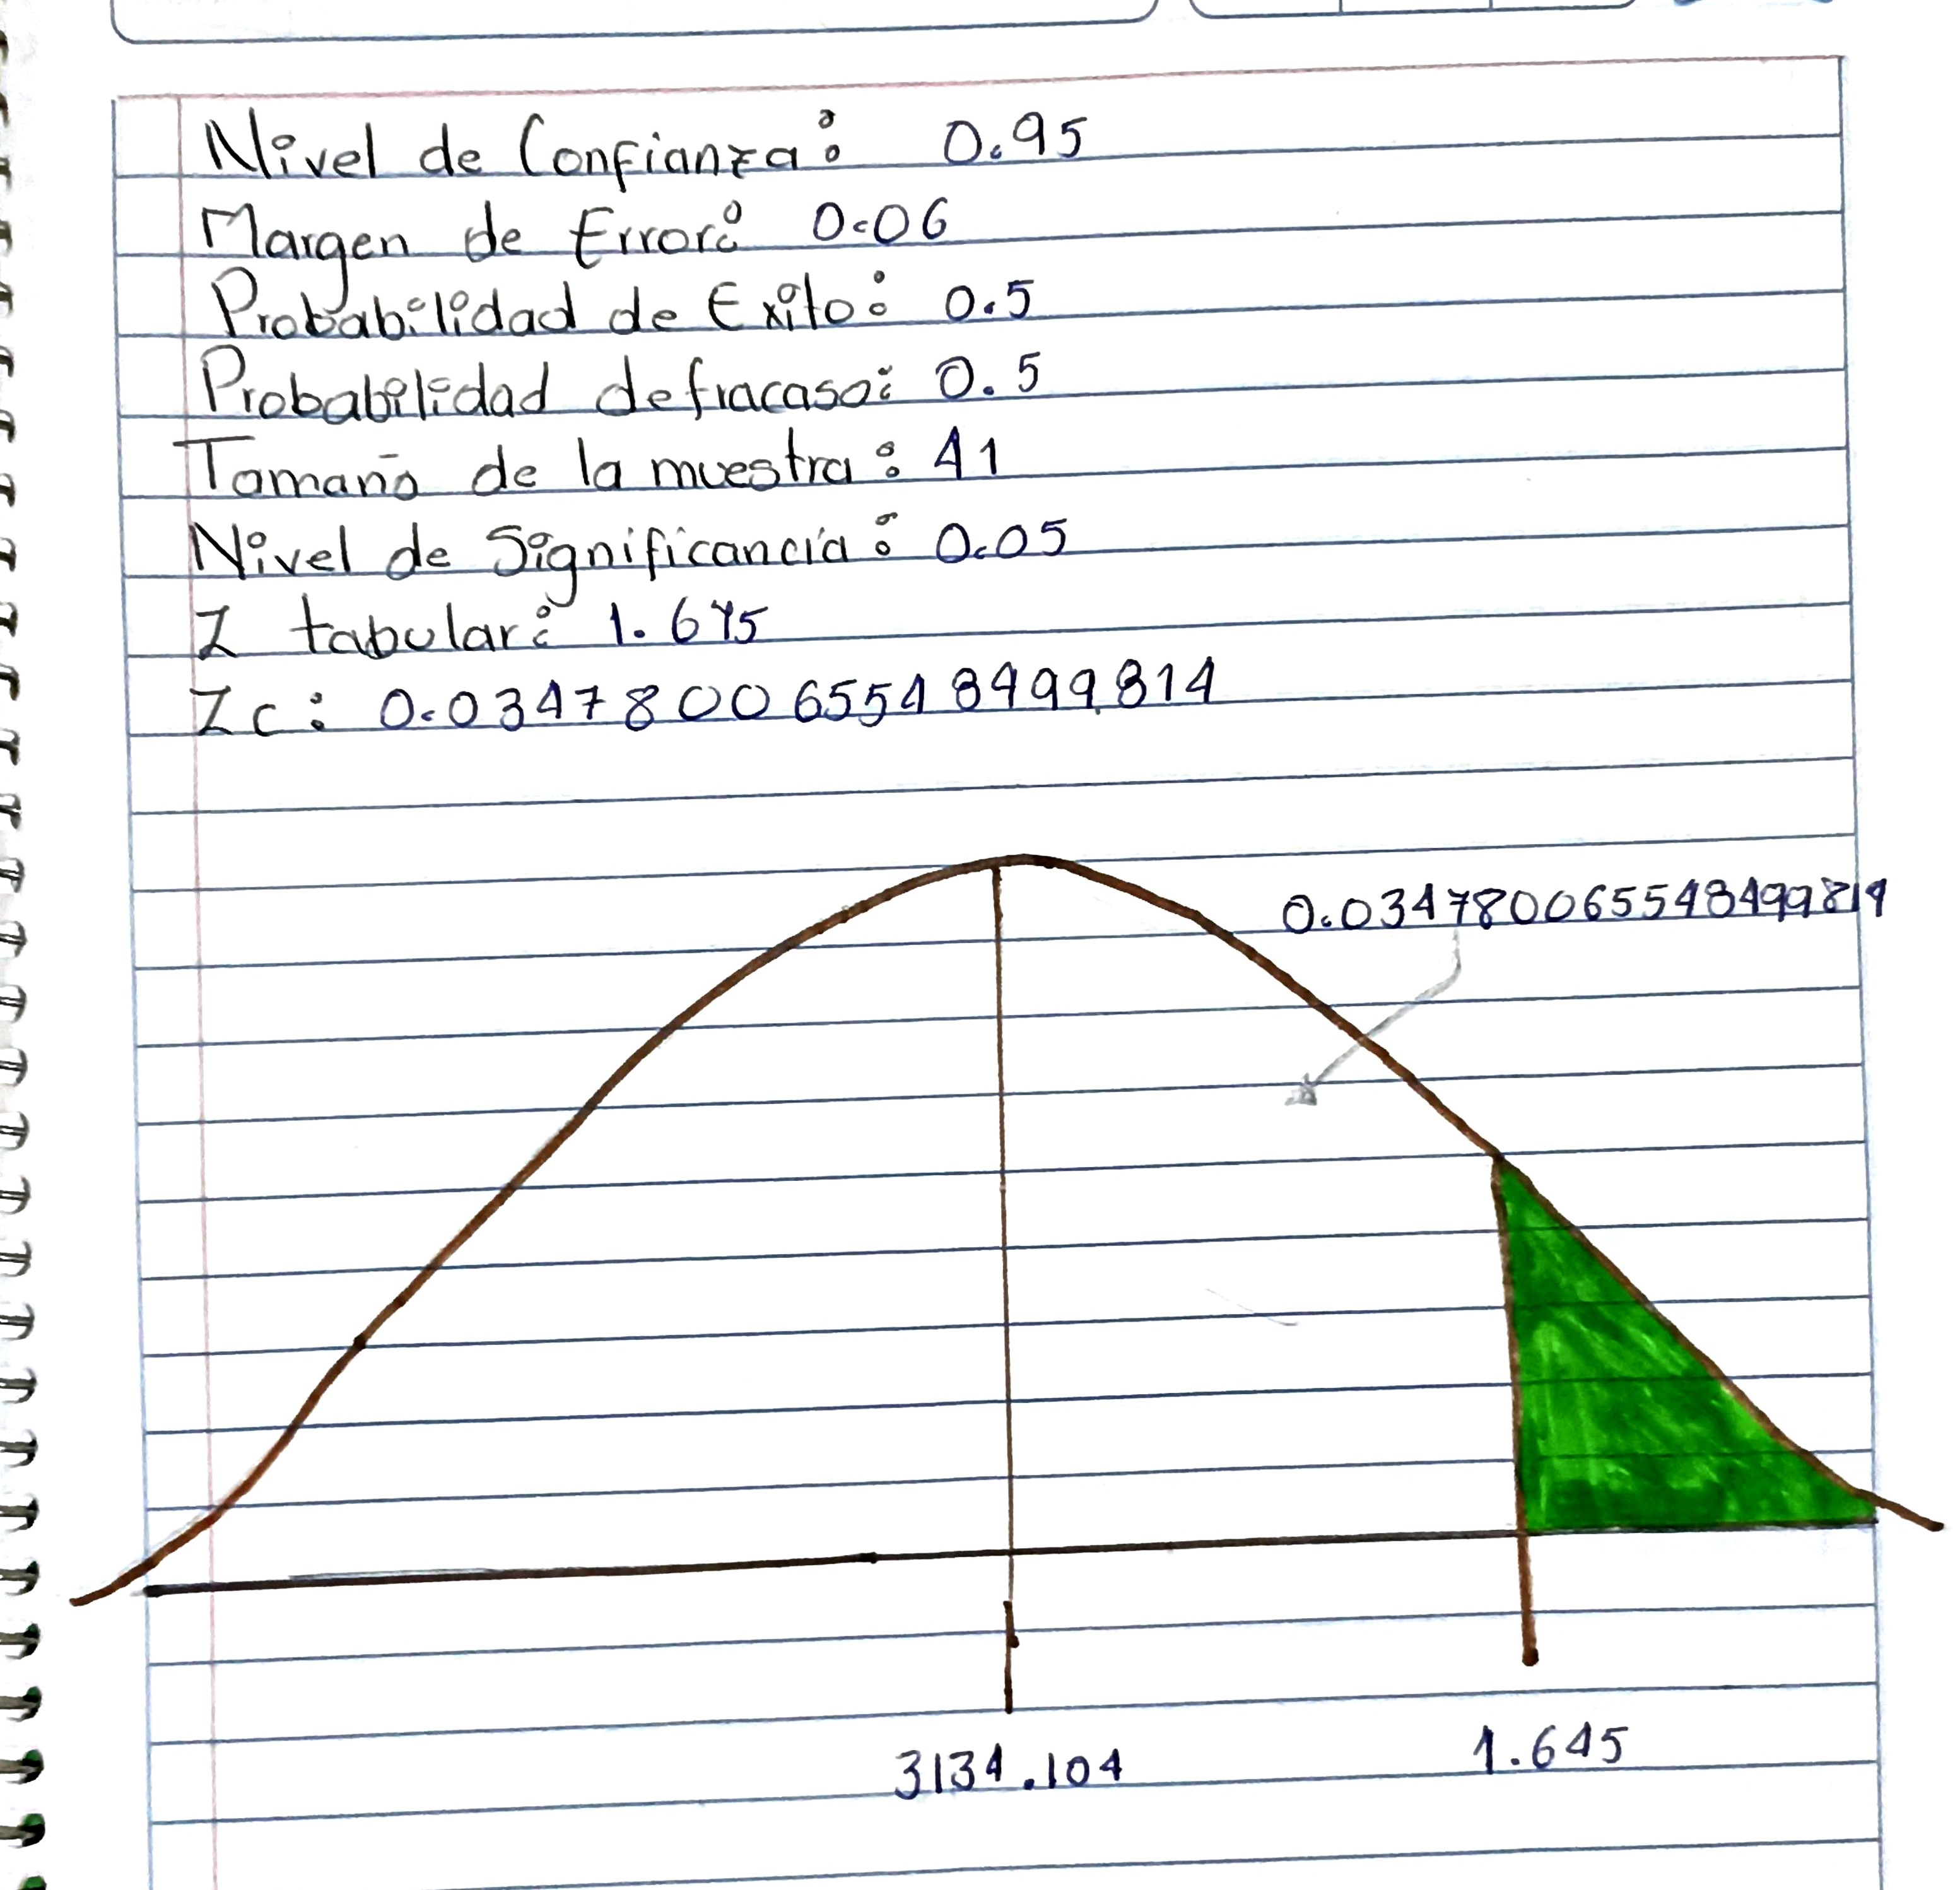 Nivel de Confianza: 0.95
Margen de Error: 0.06
Probabilidad de Exito: 0.5
Probabilidad de fracaso: 0.5
Tamaño de la muestra: 41
Nivel de Significancia: 0.05
Z tabular: 1.645
Zc: 0.034780065548499814
0.034780065548499814
3134.104
1.645